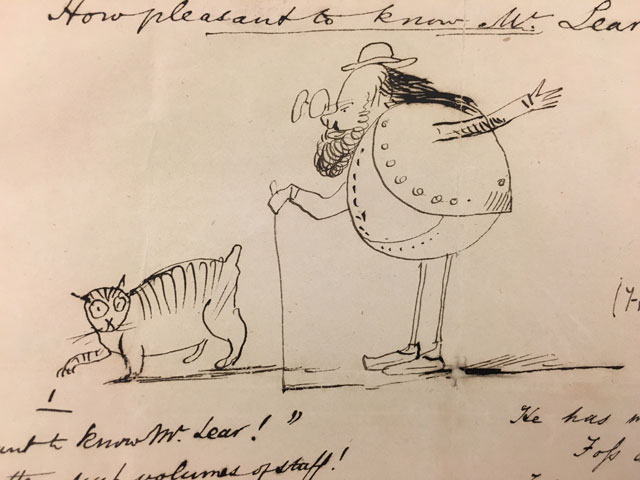 How pleasant to know Mr. Lear
ant to know Mr. Lear! ”
such volumes of stuff!
He has
Foss